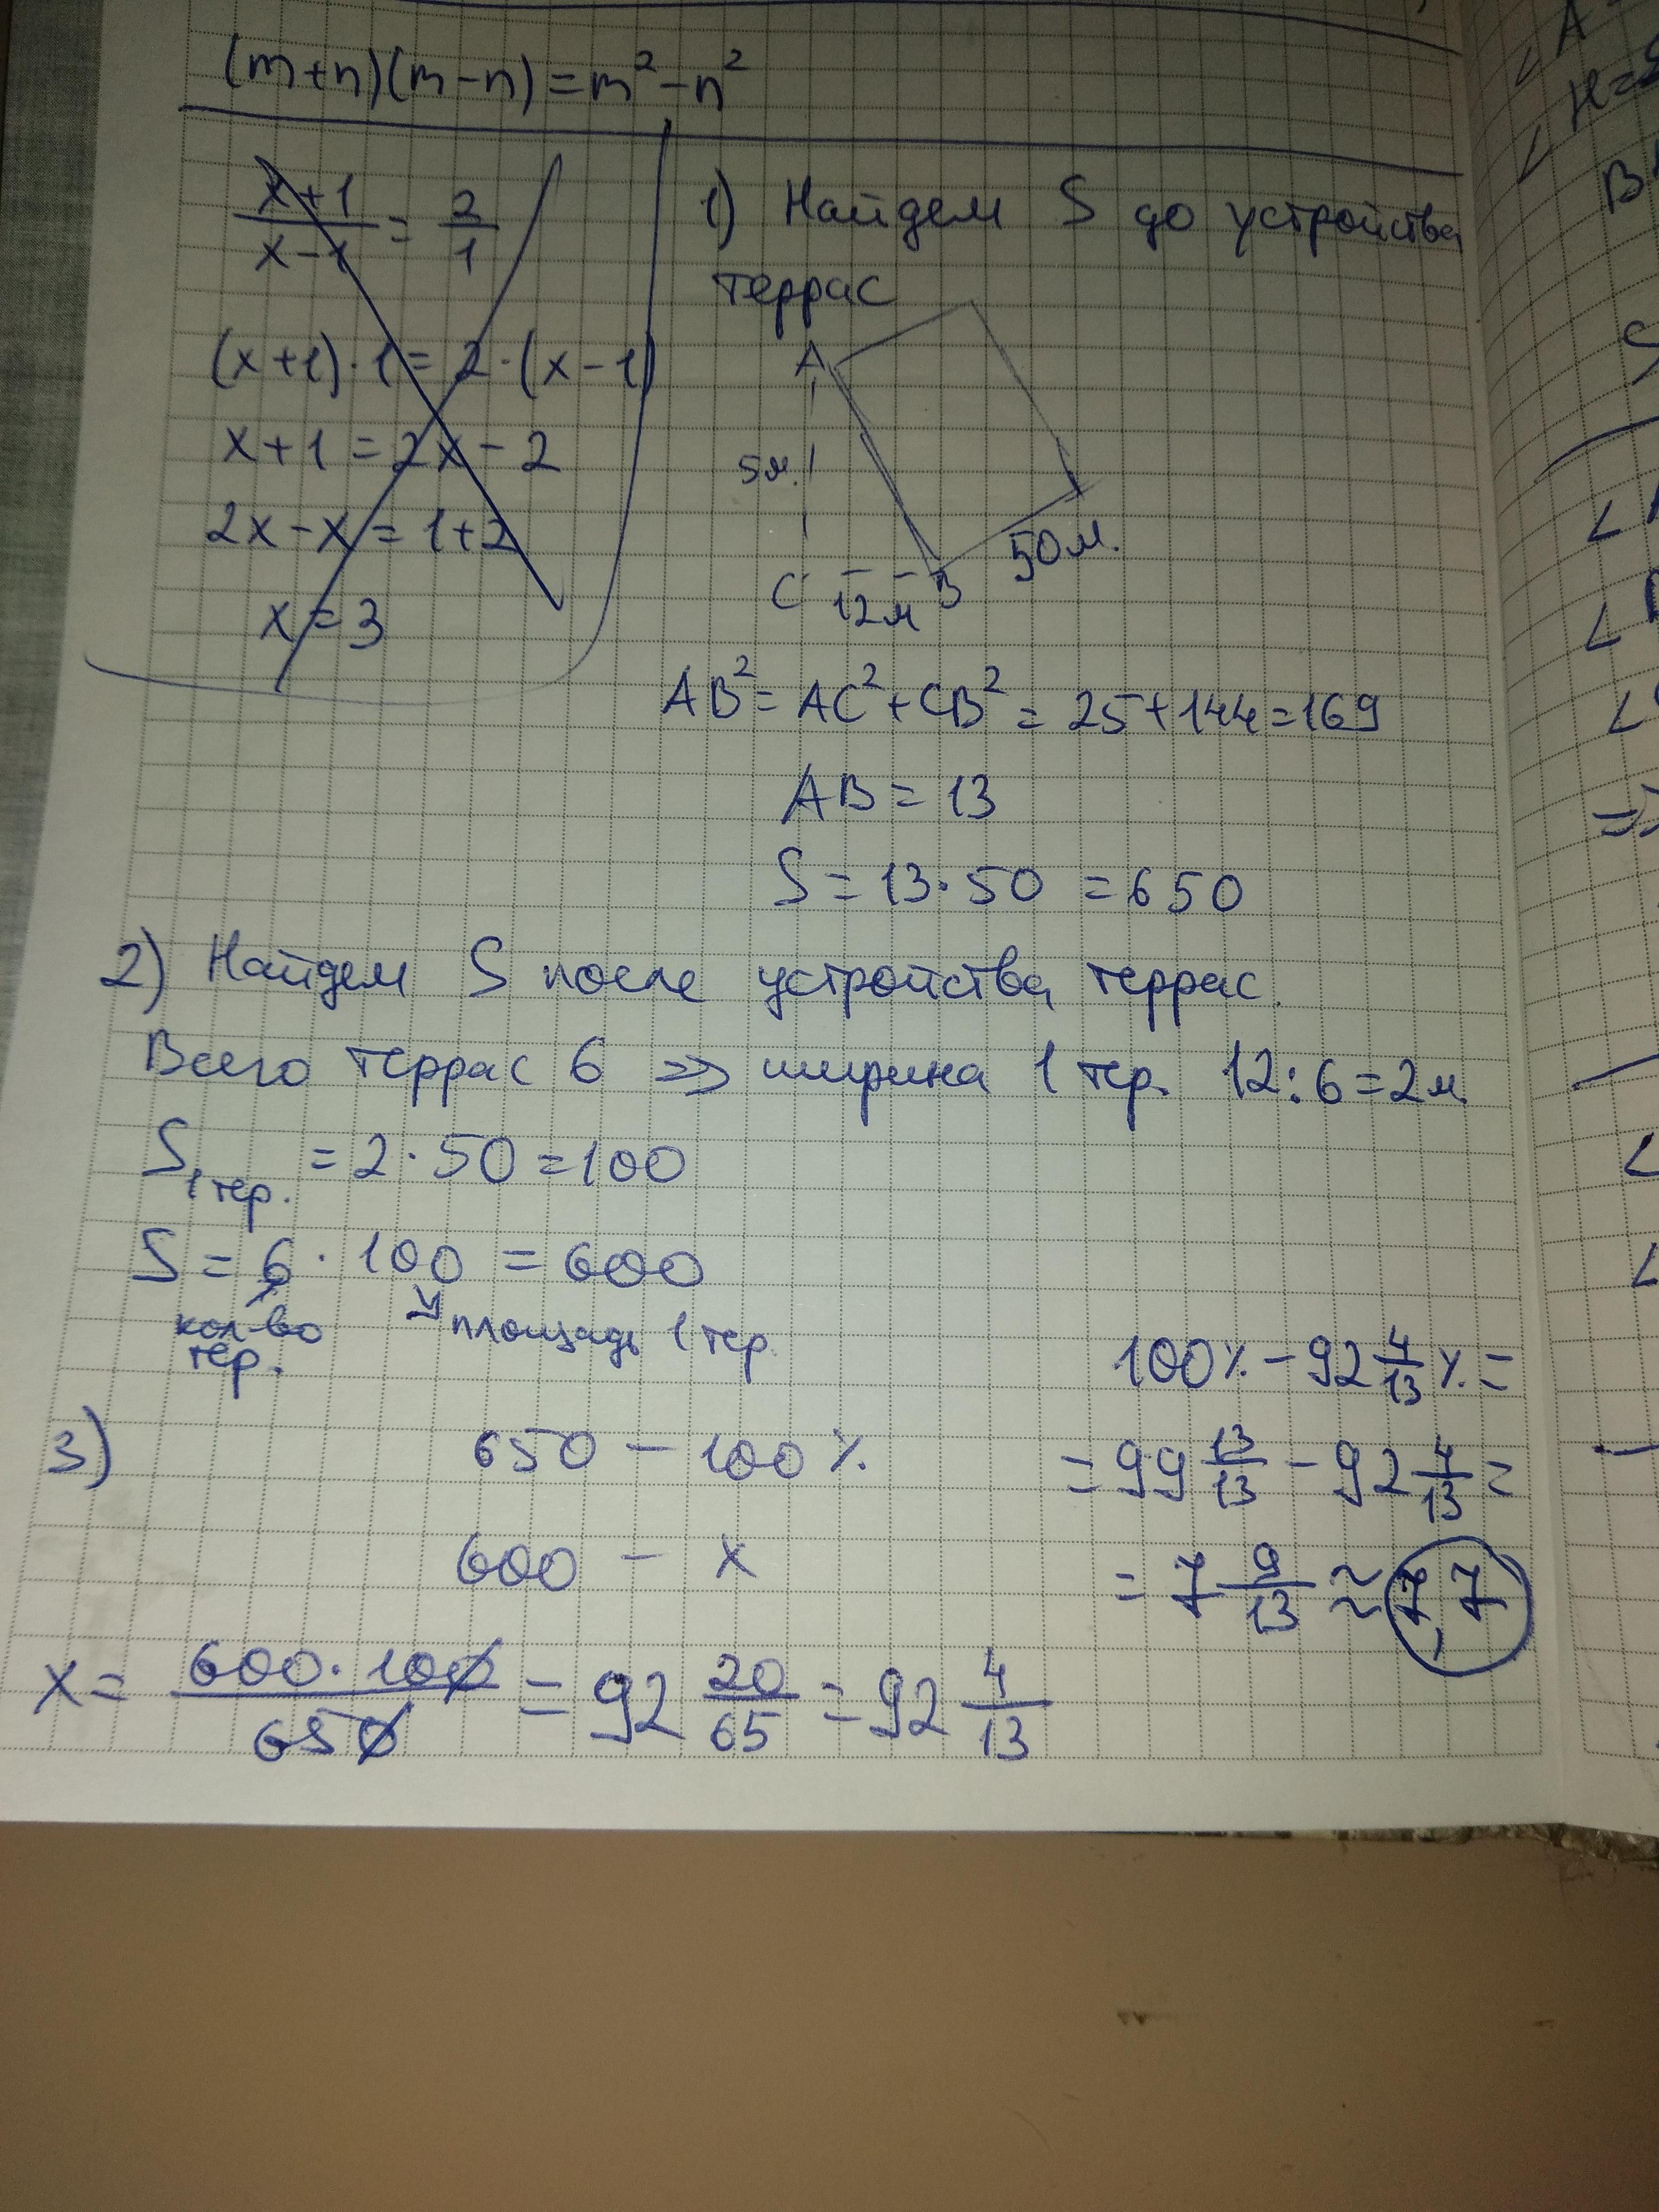 (m+n)(m-n)=m²-n²
x+1/x-1 = 2/1
(x+1)·1=2·(x-1)
x+1=2x-2
2x-x=1+2
x=3
1) Найдем S до устройства
террас
A
5м.
C 12м B 50м.
AB²=AC²+CB²=25+144=169
AB=13
S=13·50=650
2) Найдем S после устройства террас.
Всего террас 6 => ширина 1 тер. 12:6=2м.
S1 тер. =2·50=100
S=6·100=600
кол-во тер. площадь 1 тер.
3) 650 - 100%
600 - x
x= 600·100/650 = 92 20/65 = 92 4/13
100%-92 4/13%=
=99 13/13-92 4/13=
=7 9/13≈7,7